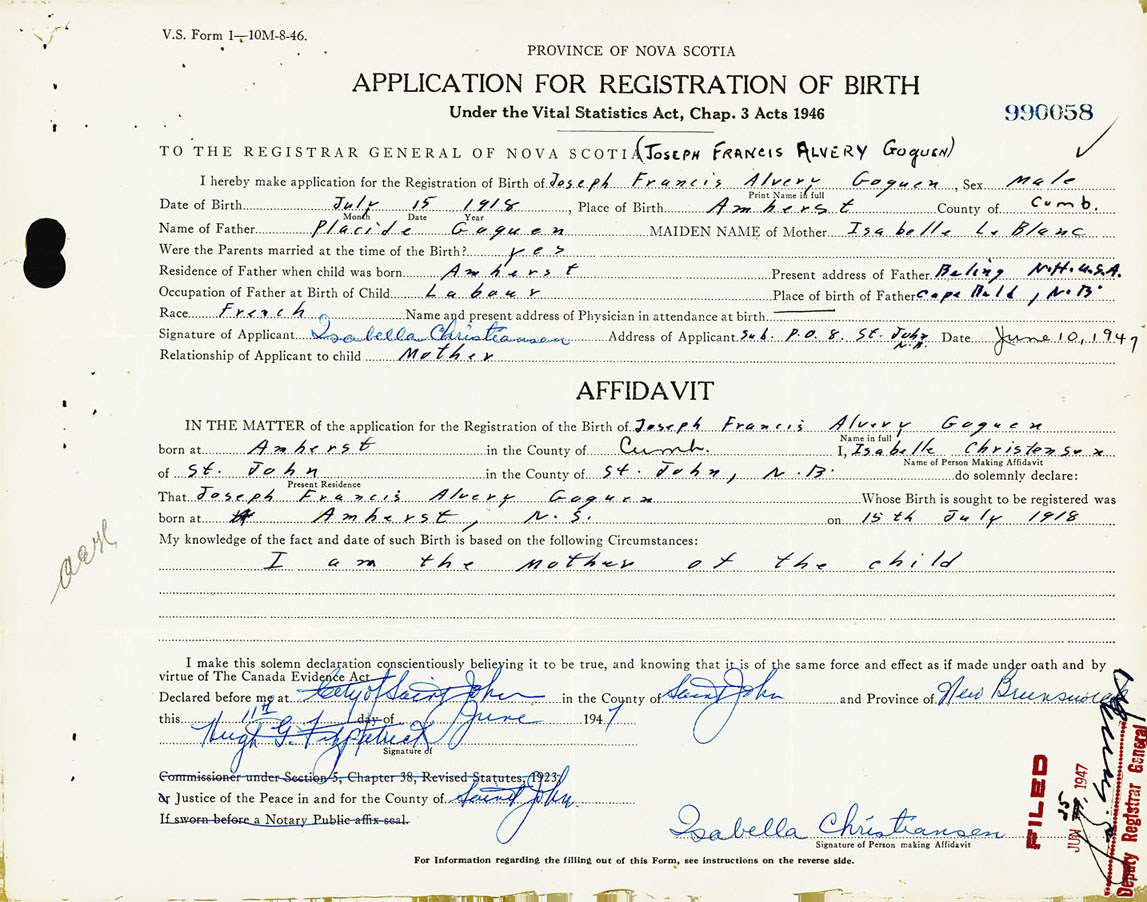 V.S. Form 1—10M-8-46.
PROVINCE OF NOVA SCOTIA
APPLICATION FOR REGISTRATION OF BIRTH
Under the Vital Statistics Act, Chap. 3 Acts 1946
990058
TO THE REGISTRAR GENERAL OF NOVA SCOTIA (JOSEPH FRANCIS ALVERY GOGUEN)
I hereby make application for the Registration of Birth of Joseph Francis Alvery Goguen, Sex Male
Print Name in full
Date of Birth July 15 1918, Place of Birth Amherst County of Cumb.
Month Date Year
Name of Father Placide Goguen MAIDEN NAME of Mother Isabelle Le Blanc
Were the Parents married at the time of the Birth? yes
Residence of Father when child was born Amherst Present address of Father Beling N.H. U.S.A.
Occupation of Father at Birth of Child Labour Place of birth of Father Cape Bald, N.B.
Race French Name and present address of Physician in attendance at birth
Signature of Applicant Isabella Christiansen Address of Applicant Sub. P.O. 8, St. John N.B. Date June 10, 1947
Relationship of Applicant to child Mother
AFFIDAVIT
IN THE MATTER of the application for the Registration of the Birth of Joseph Francis Alvery Goguen
Name in full
born at Amherst in the County of Cumb. I, Isabelle Christensen
Name of Person Making Affidavit
of St. John in the County of St. John, N.B. do solemnly declare:
Present Residence
That Joseph Francis Alvery Goguen Whose Birth is sought to be registered was
born at Amherst, N.S. on 15th July 1918
My knowledge of the fact and date of such Birth is based on the following Circumstances:
I am the mother of the child
I make this solemn declaration conscientiously believing it to be true, and knowing that it is of the same force and effect as if made under oath and by
virtue of The Canada Evidence Act.
Declared before me at City of Saint John in the County of Saint John and Province of New Brunswick
this 11th day of June 1947
Hugh G. Fitzpatrick
Signature of
Commissioner under Section 5, Chapter 38, Revised Statutes, 1923
or Justice of the Peace in and for the County of Saint John
If sworn before a Notary Public affix seal.
Isabella Christiansen
Signature of Person making Affidavit
For Information regarding the filling out of this Form, see instructions on the reverse side.
FILED
JUN 25 1947
Deputy Registrar General